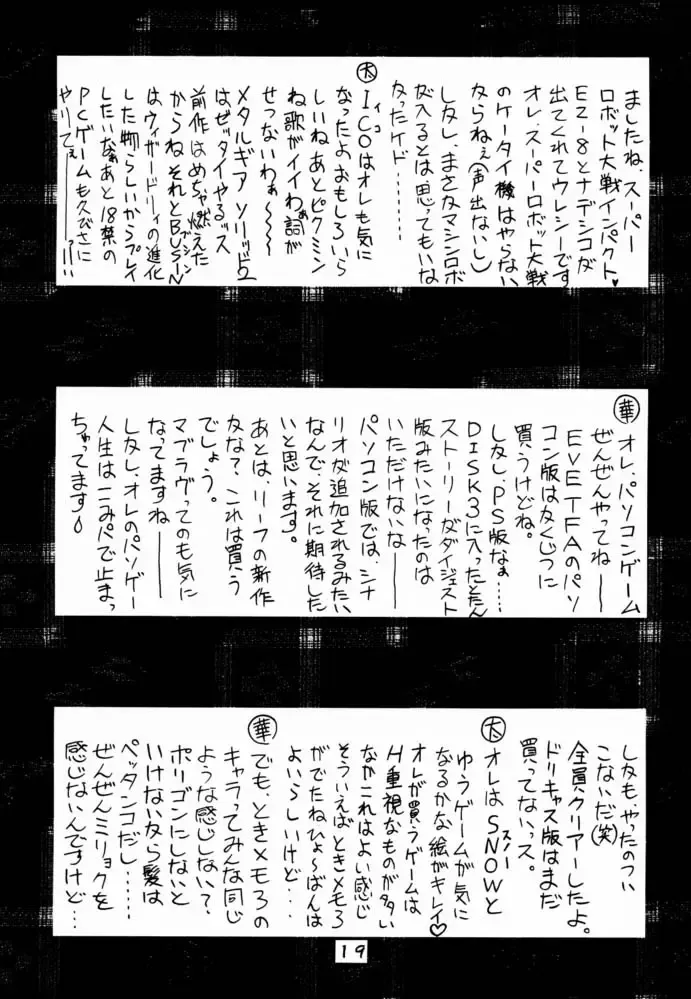 ましたね、スーパー
ロボット大戦インパクト♥
EZ-8とナデシコが
出てくれてウレシーです
オレ、スーパーロボット大戦
のケータイ機はやらない
ならねぇ(声出ないし)
しかし、まさかマシンロボ
が入るとは思ってもいな
かったケド………
太 ICOはオレも気に
イコ
なったよおもしろいら
しいねあとピクミン
ね歌がイイわぁ詞が
せつないわぁ〜〜〜
メタルギア ソリッド2
はゼッタイやるッス
前作はめちゃ燃えた
からねそれとBUSIN
ブシン
はウィザードリィの進化
した物らしいからプレイ
したいなぁあと18禁の
PCゲームも久びさに
やりてぇ———ッ!!
華 オレ、パソコンゲーム
ぜんぜんやってね——
EVE TFAのパソ
コン版はかくじつに
買うけどね。
しかし、PS版なぁ……
DISK3に入ったとたん
ストーリーがダイジェスト
版みたいになったのは
いただけないな——
パソコン版では、シナ
リオが追加されるみたい
なんで、それに期待した
いと思います。
あとは、リーフの新作
かな?これは買う
でしょう。
マブラヴってのも気に
なってますね———
しかし、オレのパソゲー
人生はこみパで止まっ
ちゃってます
しかも、やったのつい
こないだ(笑)
全員クリアーしたよ。
ドリキャス版はまだ
買ってないっス。
太 オレはSNOWと
スノー
ゆうゲームが気に
なるかな絵がキレイ♡
オレが買うゲームは
H重視なものが多い
なかこれはよい感じ
そういえばときメモ3
がでたねひょ〜ばんは
よいらしいけど…
華 でも、ときメモ3の
キャラってみんな同じ
ような感じしない?
ポリゴンにしないと
いけないから髪は
ペッタンコだし……
ぜんぜんミリョクを
感じないんですけど…
19